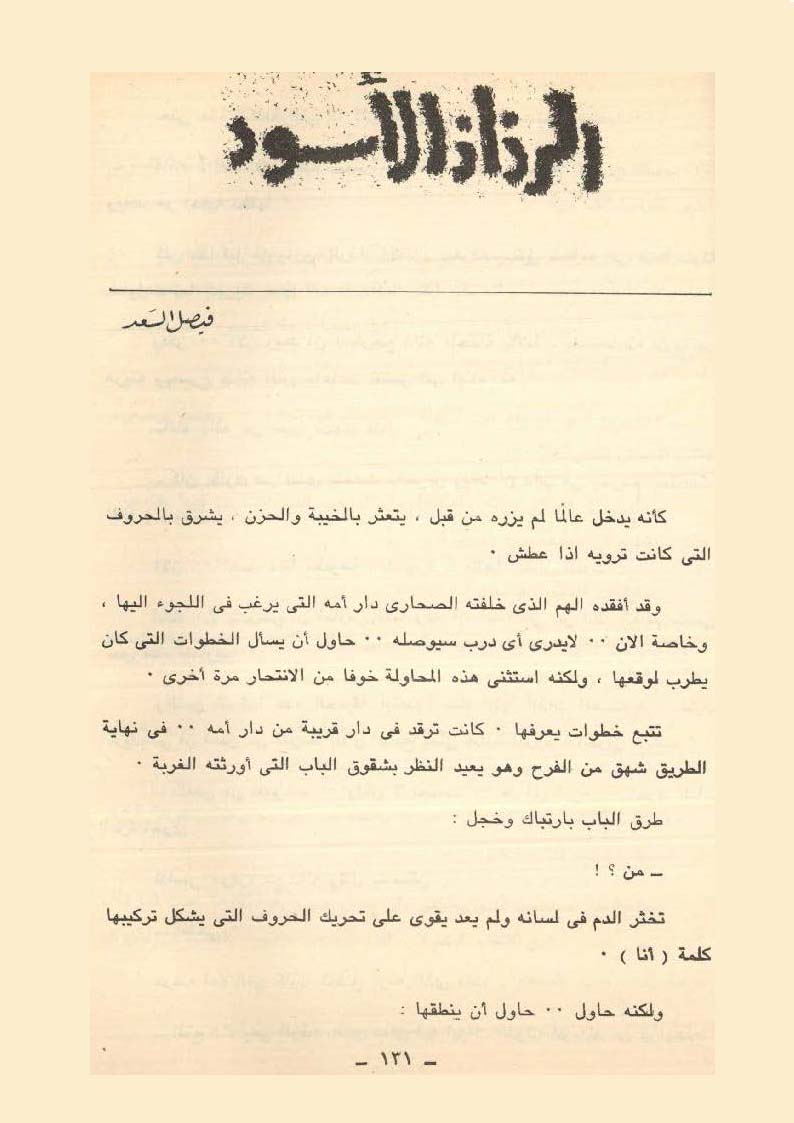 الرذاذ الأسود
فيصل السَعد
كأنه يدخل عالمًا لم يزره من قبل ، يتعثر بالخيبة والحزن ، يشرق بالحروف
التى كانت ترويه اذا عطش ٠
وقد أفقده الهم الذى خلفته الصحارى دار أمه التى يرغب فى اللجوء اليها ،
وخاصة الان ٠٠ لايدرى أى درب سيوصله ٠٠ حاول أن يسأل الخطوات التى كان
يطرب لوقعها ، ولكنه استثنى هذه المحاولة خوفا من الانتحار مرة أخرى ٠
تتبع خطوات يعرفها ٠ كانت ترقد فى دار قريبة من دار أمه ٠٠ فى نهاية
الطريق شهق من الفرح وهو يعيد النظر بشقوق الباب التى أورثته الغربة ٠
طرق الباب بارتباك وخجل :
ــ من ؟ !
تخثر الدم فى لسانه ولم يعد يقوى على تحريك الحروف التى يشكل تركيبها
كلمة ( أنا ) ٠
ولكنه حاول ٠٠ حاول أن ينطقها :
ــ ١٣١ ــ